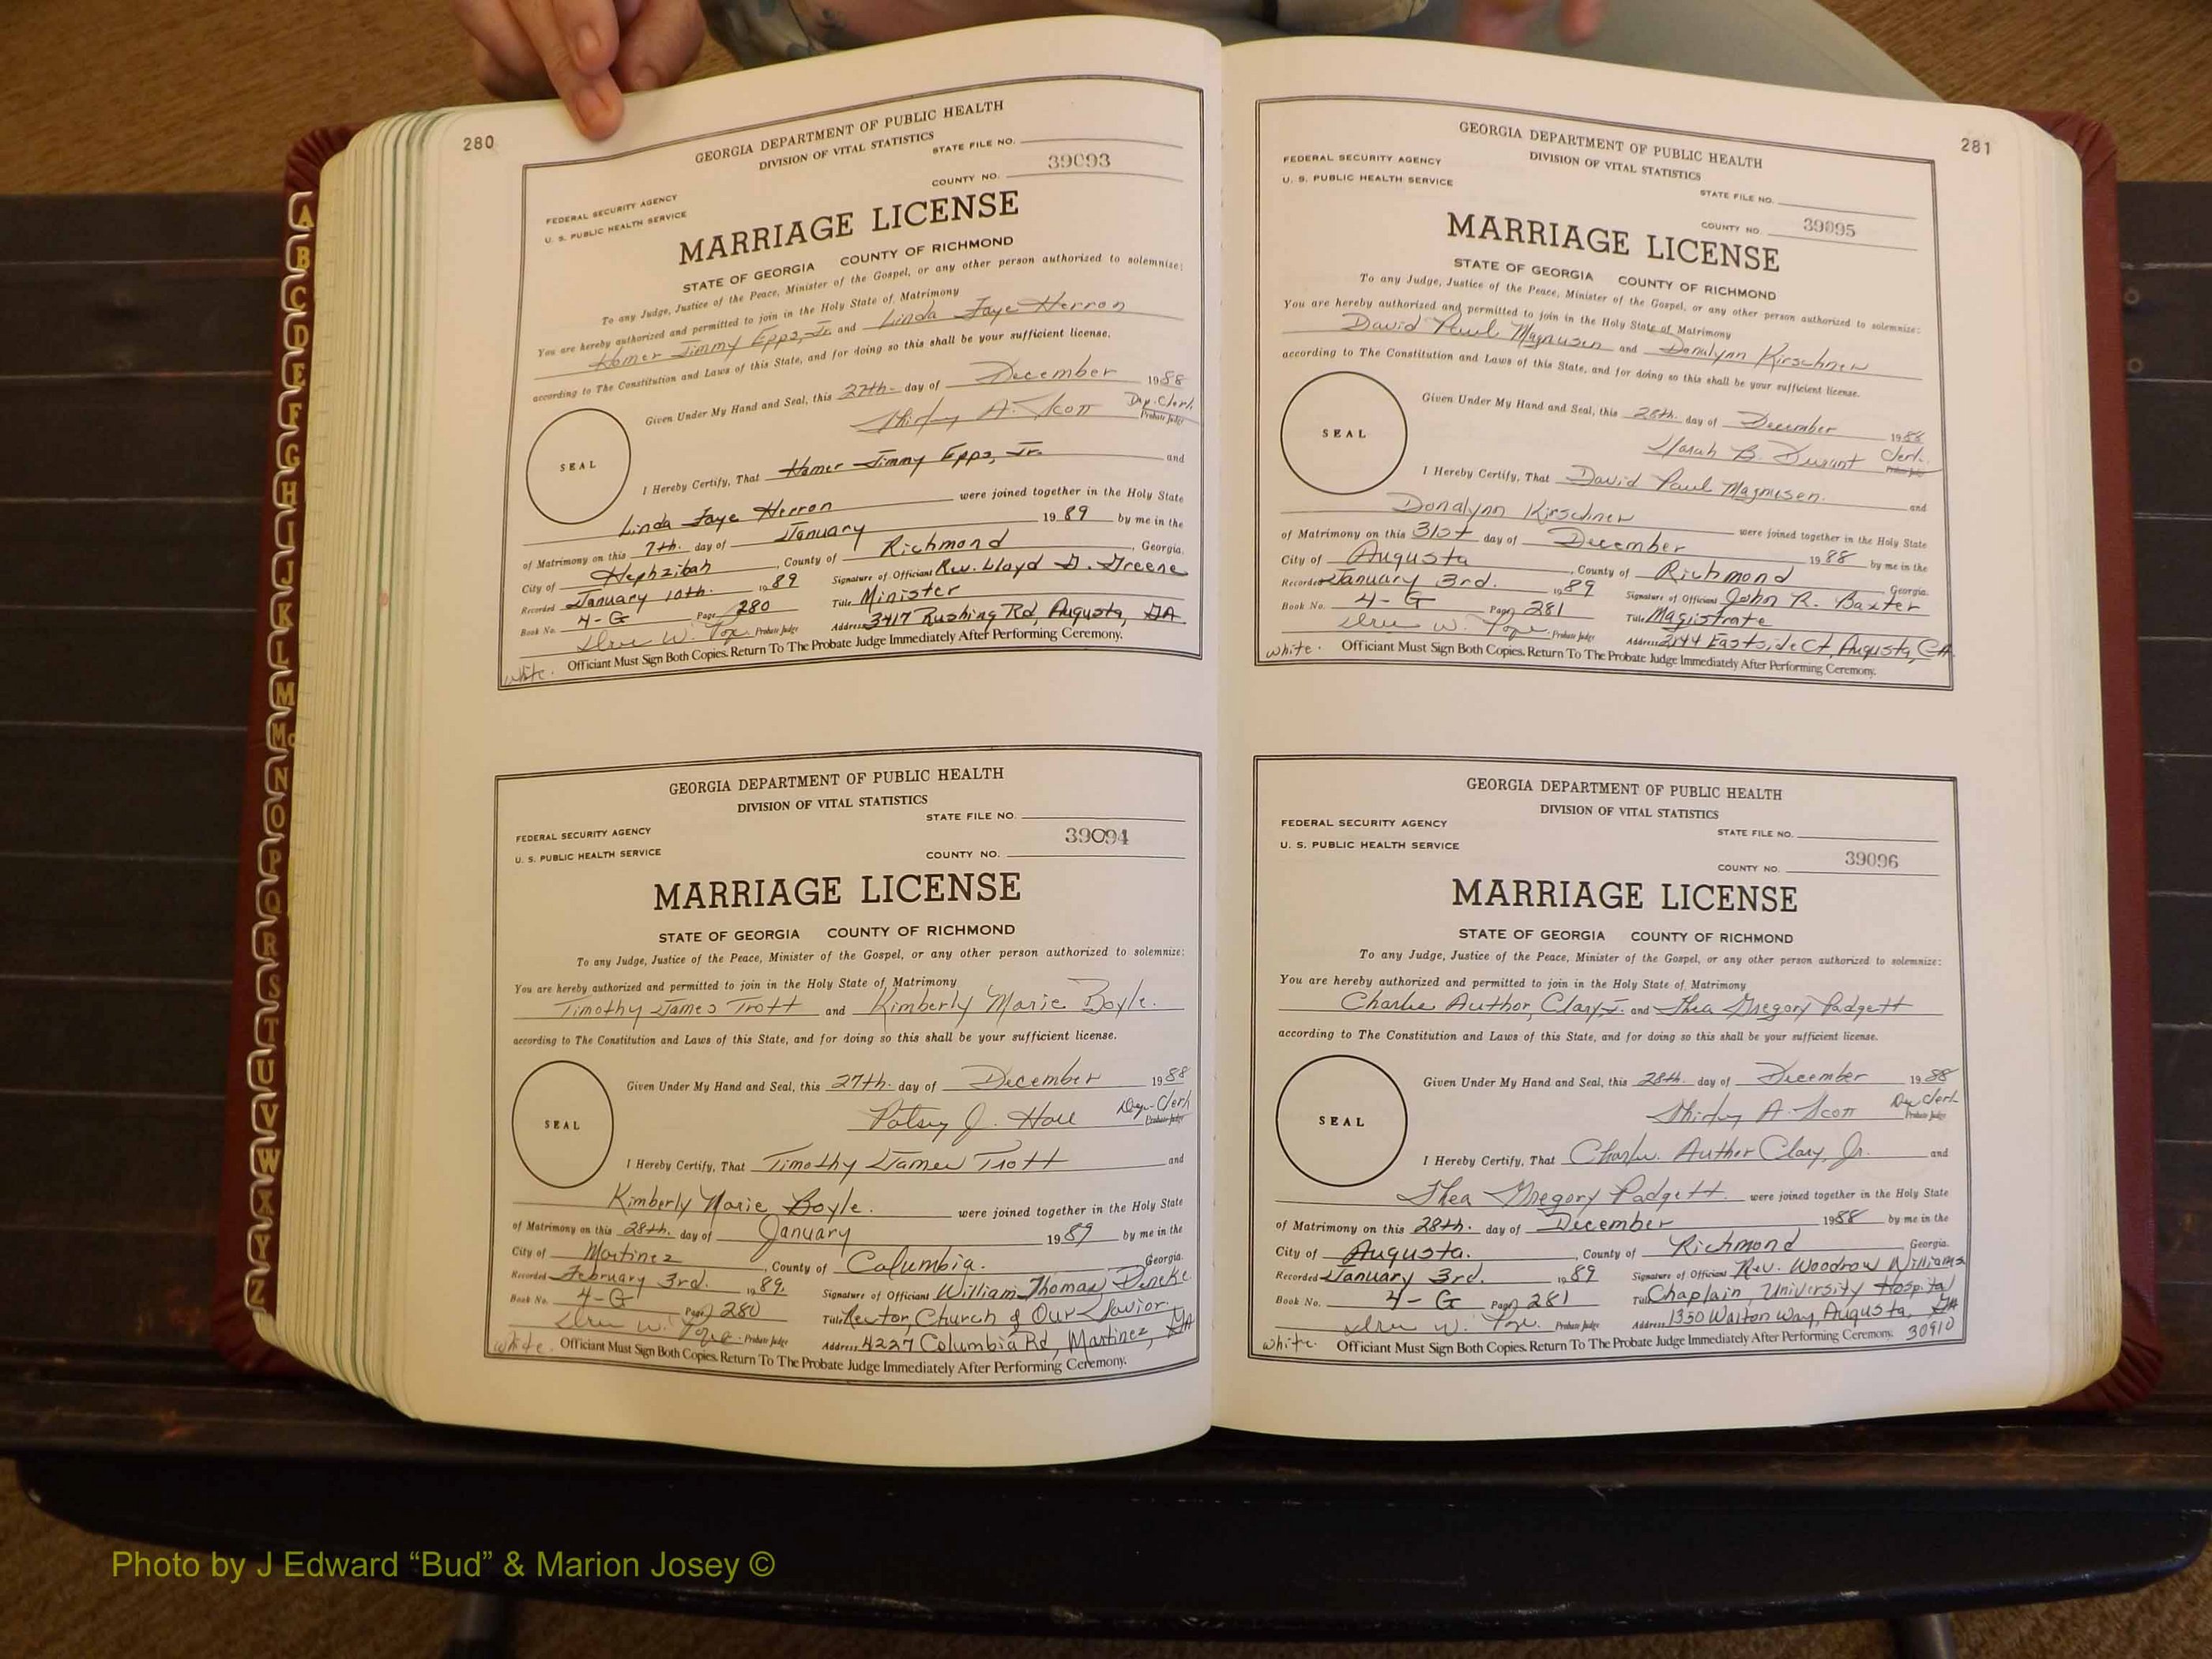 280
GEORGIA DEPARTMENT OF PUBLIC HEALTH
DIVISION OF VITAL STATISTICS
STATE FILE NO.
39093
COUNTY NO.
FEDERAL SECURITY AGENCY
U. S. PUBLIC HEALTH SERVICE
MARRIAGE LICENSE
STATE OF GEORGIA COUNTY OF RICHMOND
To any Judge, Justice of the Peace, Minister of the Gospel, or any other person authorized to solemnize:
You are hereby authorized and permitted to join in the Holy State of Matrimony
Homer Jimmy Epps, Jr. and Linda Faye Herron
according to The Constitution and Laws of this State, and for doing so this shall be your sufficient license.
Given Under My Hand and Seal, this 27th. day of December 1988
Shirley A. Scott Dep. Clerk
Probate Judge
SEAL
I Hereby Certify, That Homer Jimmy Epps, Jr. and
Linda Faye Herron were joined together in the Holy State
of Matrimony on this 7th. day of January 1989 by me in the
City of Hephzibah, County of Richmond, Georgia.
Recorded January 10th. 1989 Signature of Officiant Rev. Lloyd D. Greene
Book No. 4-G Page 280 Title Minister
W. Pope Probate Judge Address 3417 Rushing Rd, Augusta, GA
white. Officiant Must Sign Both Copies. Return To The Probate Judge Immediately After Performing Ceremony.
GEORGIA DEPARTMENT OF PUBLIC HEALTH
DIVISION OF VITAL STATISTICS
STATE FILE NO.
FEDERAL SECURITY AGENCY
39094
U. S. PUBLIC HEALTH SERVICE
COUNTY NO.
MARRIAGE LICENSE
STATE OF GEORGIA COUNTY OF RICHMOND
To any Judge, Justice of the Peace, Minister of the Gospel, or any other person authorized to solemnize:
You are hereby authorized and permitted to join in the Holy State of Matrimony
Timothy James Trott and Kimberly Marie Boyle.
according to The Constitution and Laws of this State, and for doing so this shall be your sufficient license.
Given Under My Hand and Seal, this 27th. day of December 1988
Patsy J. Hall Dep. Clerk
Probate Judge
SEAL
I Hereby Certify, That Timothy James Trott and
Kimberly Marie Boyle. were joined together in the Holy State
of Matrimony on this 28th. day of January 1989 by me in the
City of Martinez, County of Columbia. Georgia.
Recorded February 3rd. 1989. Signature of Officiant William Thomas
Book No. 4-G Page 280 Title Rector, Church of Our Savior.
W. Pope Probate Judge Address 4227 Columbia Rd, Martinez, GA
white. Officiant Must Sign Both Copies. Return To The Probate Judge Immediately After Performing Ceremony.
281
GEORGIA DEPARTMENT OF PUBLIC HEALTH
DIVISION OF VITAL STATISTICS
FEDERAL SECURITY AGENCY
U. S. PUBLIC HEALTH SERVICE
STATE FILE NO.
COUNTY NO. 39095
MARRIAGE LICENSE
STATE OF GEORGIA COUNTY OF RICHMOND
To any Judge, Justice of the Peace, Minister of the Gospel, or any other person authorized to solemnize:
You are hereby authorized and permitted to join in the Holy State of Matrimony
David Paul Magnusen and Donalynn Kirschner
according to The Constitution and Laws of this State, and for doing so this shall be your sufficient license.
Given Under My Hand and Seal, this 28th. day of December 1988
Sarah B. Durant Clerk.
Probate Judge
SEAL
I Hereby Certify, That David Paul Magnusen. and
Donalynn Kirschner were joined together in the Holy State
of Matrimony on this 31st day of December 1988 by me in the
City of Augusta, County of Richmond Georgia.
Recorded January 3rd. 1989 Signature of Officiant John R. Baxter
Book No. 4-G Page 281 Title Magistrate
W. Pope. Probate Judge Address 2144 Eastside Ct, Augusta, GA.
white. Officiant Must Sign Both Copies. Return To The Probate Judge Immediately After Performing Ceremony.
GEORGIA DEPARTMENT OF PUBLIC HEALTH
DIVISION OF VITAL STATISTICS
FEDERAL SECURITY AGENCY
STATE FILE NO.
U. S. PUBLIC HEALTH SERVICE
39096
COUNTY NO.
MARRIAGE LICENSE
STATE OF GEORGIA COUNTY OF RICHMOND
To any Judge, Justice of the Peace, Minister of the Gospel, or any other person authorized to solemnize:
You are hereby authorized and permitted to join in the Holy State of Matrimony
Charlie Author Clary Jr. and Thea Gregory Padgett
according to The Constitution and Laws of this State, and for doing so this shall be your sufficient license.
Given Under My Hand and Seal, this 28th. day of December 1988
Shirley A. Scott Dep Clerk
Probate Judge
SEAL
I Hereby Certify, That Charlie Auther Clary, Jr. and
Thea Gregory Padgett. were joined together in the Holy State
of Matrimony on this 28th. day of December 1988 by me in the
City of Augusta., County of Richmond Georgia.
Recorded January 3rd. 1989 Signature of Officiant Rev. Woodrow Williams
Book No. 4-G Page 281 Title Chaplain University Hospital
W. Pope. Probate Judge Address 1350 Walton Way, Augusta, GA
white. Officiant Must Sign Both Copies. Return To The Probate Judge Immediately After Performing Ceremony. 30910
A
B
C
D
E
F
G
H
I
J
K
L
M
Mc
N
O
P
Q
R
S
T
U
V
W
X
Y
Z
Photo by J Edward “Bud” & Marion Josey ©